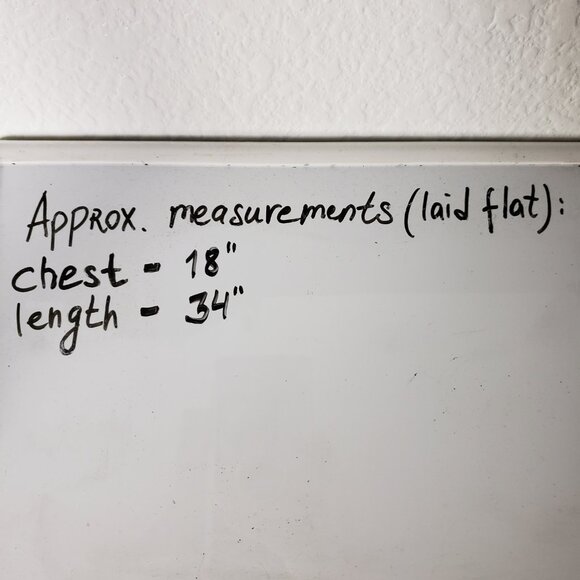 Approx. measurements (laid flat):
chest - 18"
length - 34"